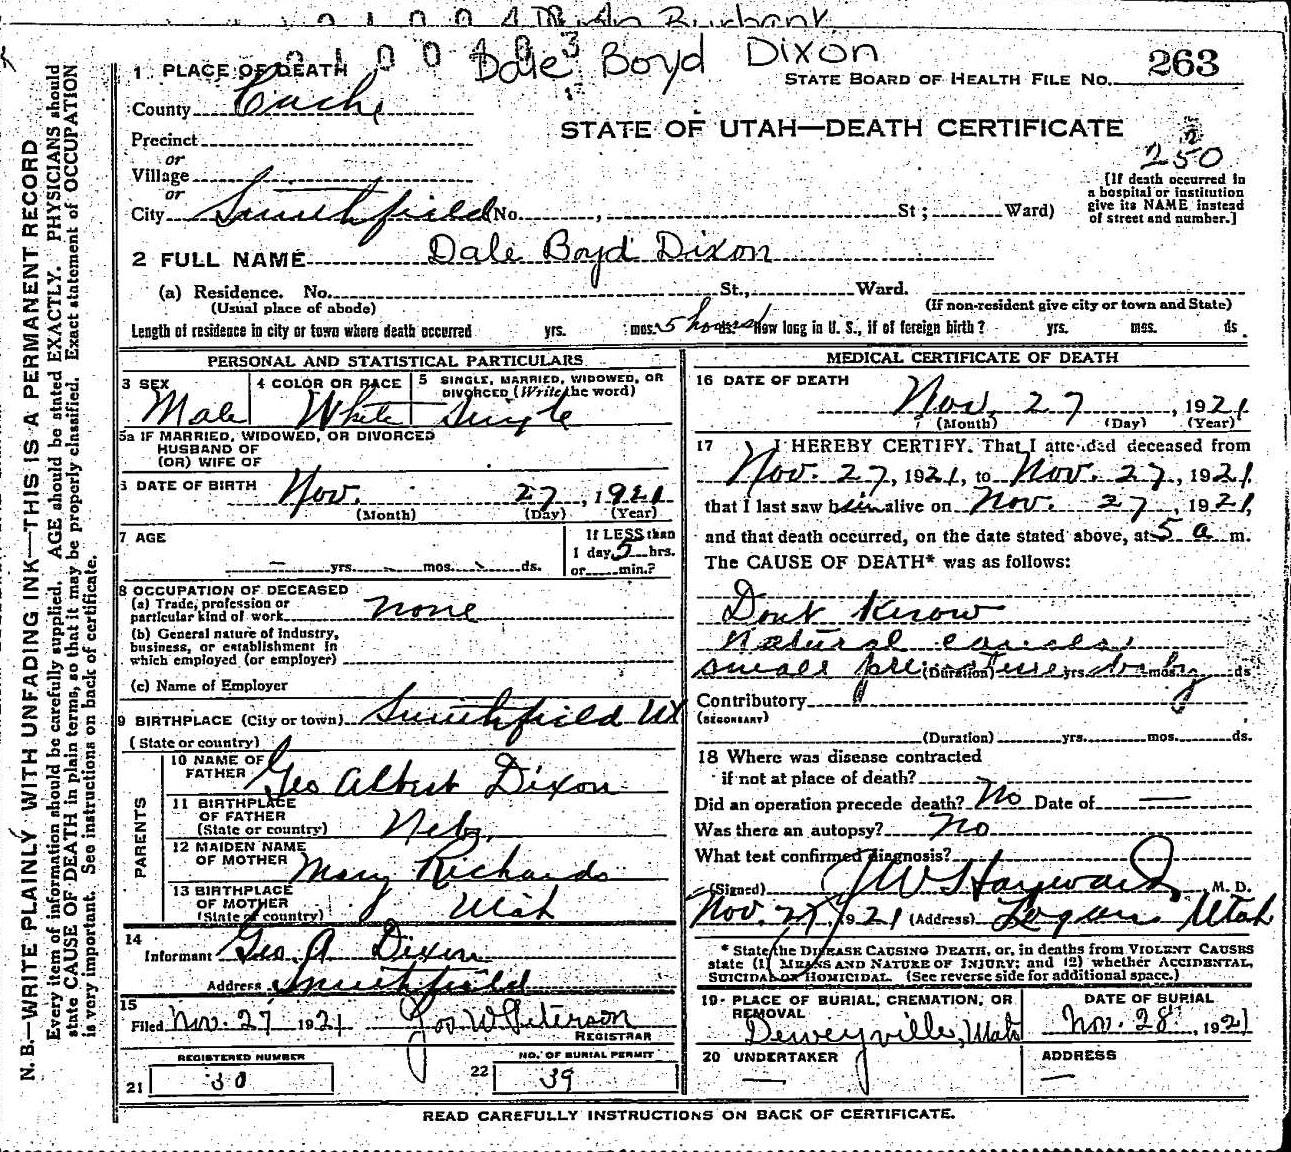 Dale Boyd Dixon
263
STATE BOARD OF HEALTH FILE No.
1 PLACE OF DEATH
County Cache
STATE OF UTAH—DEATH CERTIFICATE
Precinct
or
250
Village
or
[If death occurred in
a hospital or institution
give its NAME instead
of street and number.]
City Smithfield No. , St; Ward)
2 FULL NAME Dale Boyd Dixon
(a) Residence. No. St., Ward.
(Usual place of abode) (If non-resident give city or town and State)
Length of residence in city or town where death occurred yrs. mos. 5 hours How long in U. S., if of foreign birth? yrs. mos. ds.
PERSONAL AND STATISTICAL PARTICULARS
3 SEX Male
4 COLOR OR RACE White
5 SINGLE, MARRIED, WIDOWED, OR
DIVORCED (Write the word) Single
5a IF MARRIED, WIDOWED, OR DIVORCED
HUSBAND OF
(OR) WIFE OF
6 DATE OF BIRTH Nov. 27, 1921
(Month) (Day) (Year)
7 AGE
If LESS than
1 day, 5 hrs.
yrs. mos. ds. or min.?
8 OCCUPATION OF DECEASED
(a) Trade, profession or
particular kind of work none
(b) General nature of industry,
business, or establishment in
which employed (or employer)
(c) Name of Employer
9 BIRTHPLACE (City or town) Smithfield Ut
(State or country)
PARENTS
10 NAME OF
FATHER Geo Albert Dixon
11 BIRTHPLACE
OF FATHER
(State or country) Nebr.
12 MAIDEN NAME
OF MOTHER Mary Richards
13 BIRTHPLACE
OF MOTHER
(State or country) Utah
14
Informant Geo. A Dixon
Address Smithfield
15
Filed Nov. 27 1921 Jos. W. Peterson
REGISTRAR
REGISTERED NUMBER
21 30
NO. OF BURIAL PERMIT
22 39
MEDICAL CERTIFICATE OF DEATH
16 DATE OF DEATH
Nov. 27, 1921
(Month) (Day) (Year)
17 I HEREBY CERTIFY, That I attended deceased from
Nov. 27, 1921, to Nov. 27, 1921
that I last saw him alive on Nov. 27, 1921,
and that death occurred, on the date stated above, at 5 a m.
The CAUSE OF DEATH* was as follows:
Dont Know
Natural causes,
small premature baby
(Duration) yrs. mos. ds
Contributory
(SECONDARY)
(Duration) yrs. mos. ds.
18 Where was disease contracted
if not at place of death?
Did an operation precede death? No Date of —
Was there an autopsy? No
What test confirmed diagnosis?
(Signed) J W Hayward, M. D.
Nov. 27, 1921 (Address) Logan Utah
* State the DISEASE CAUSING DEATH, or, in deaths from VIOLENT CAUSES
state (1) MEANS AND NATURE OF INJURY; and (2) whether ACCIDENTAL,
SUICIDAL OR HOMICIDAL. (See reverse side for additional space.)
19 PLACE OF BURIAL, CREMATION, OR
REMOVAL
Deweyville, Utah
DATE OF BURIAL
Nov. 28, 1921
20 UNDERTAKER
—
ADDRESS
—
READ CAREFULLY INSTRUCTIONS ON BACK OF CERTIFICATE.
N. B.—WRITE PLAINLY WITH UNFADING INK—THIS IS A PERMANENT RECORD
Every item of information should be carefully supplied. AGE should be stated EXACTLY. PHYSICIANS should
state CAUSE OF DEATH in plain terms, so that it may be properly classified. Exact statement of OCCUPATION
is very important. See instructions on back of certificate.